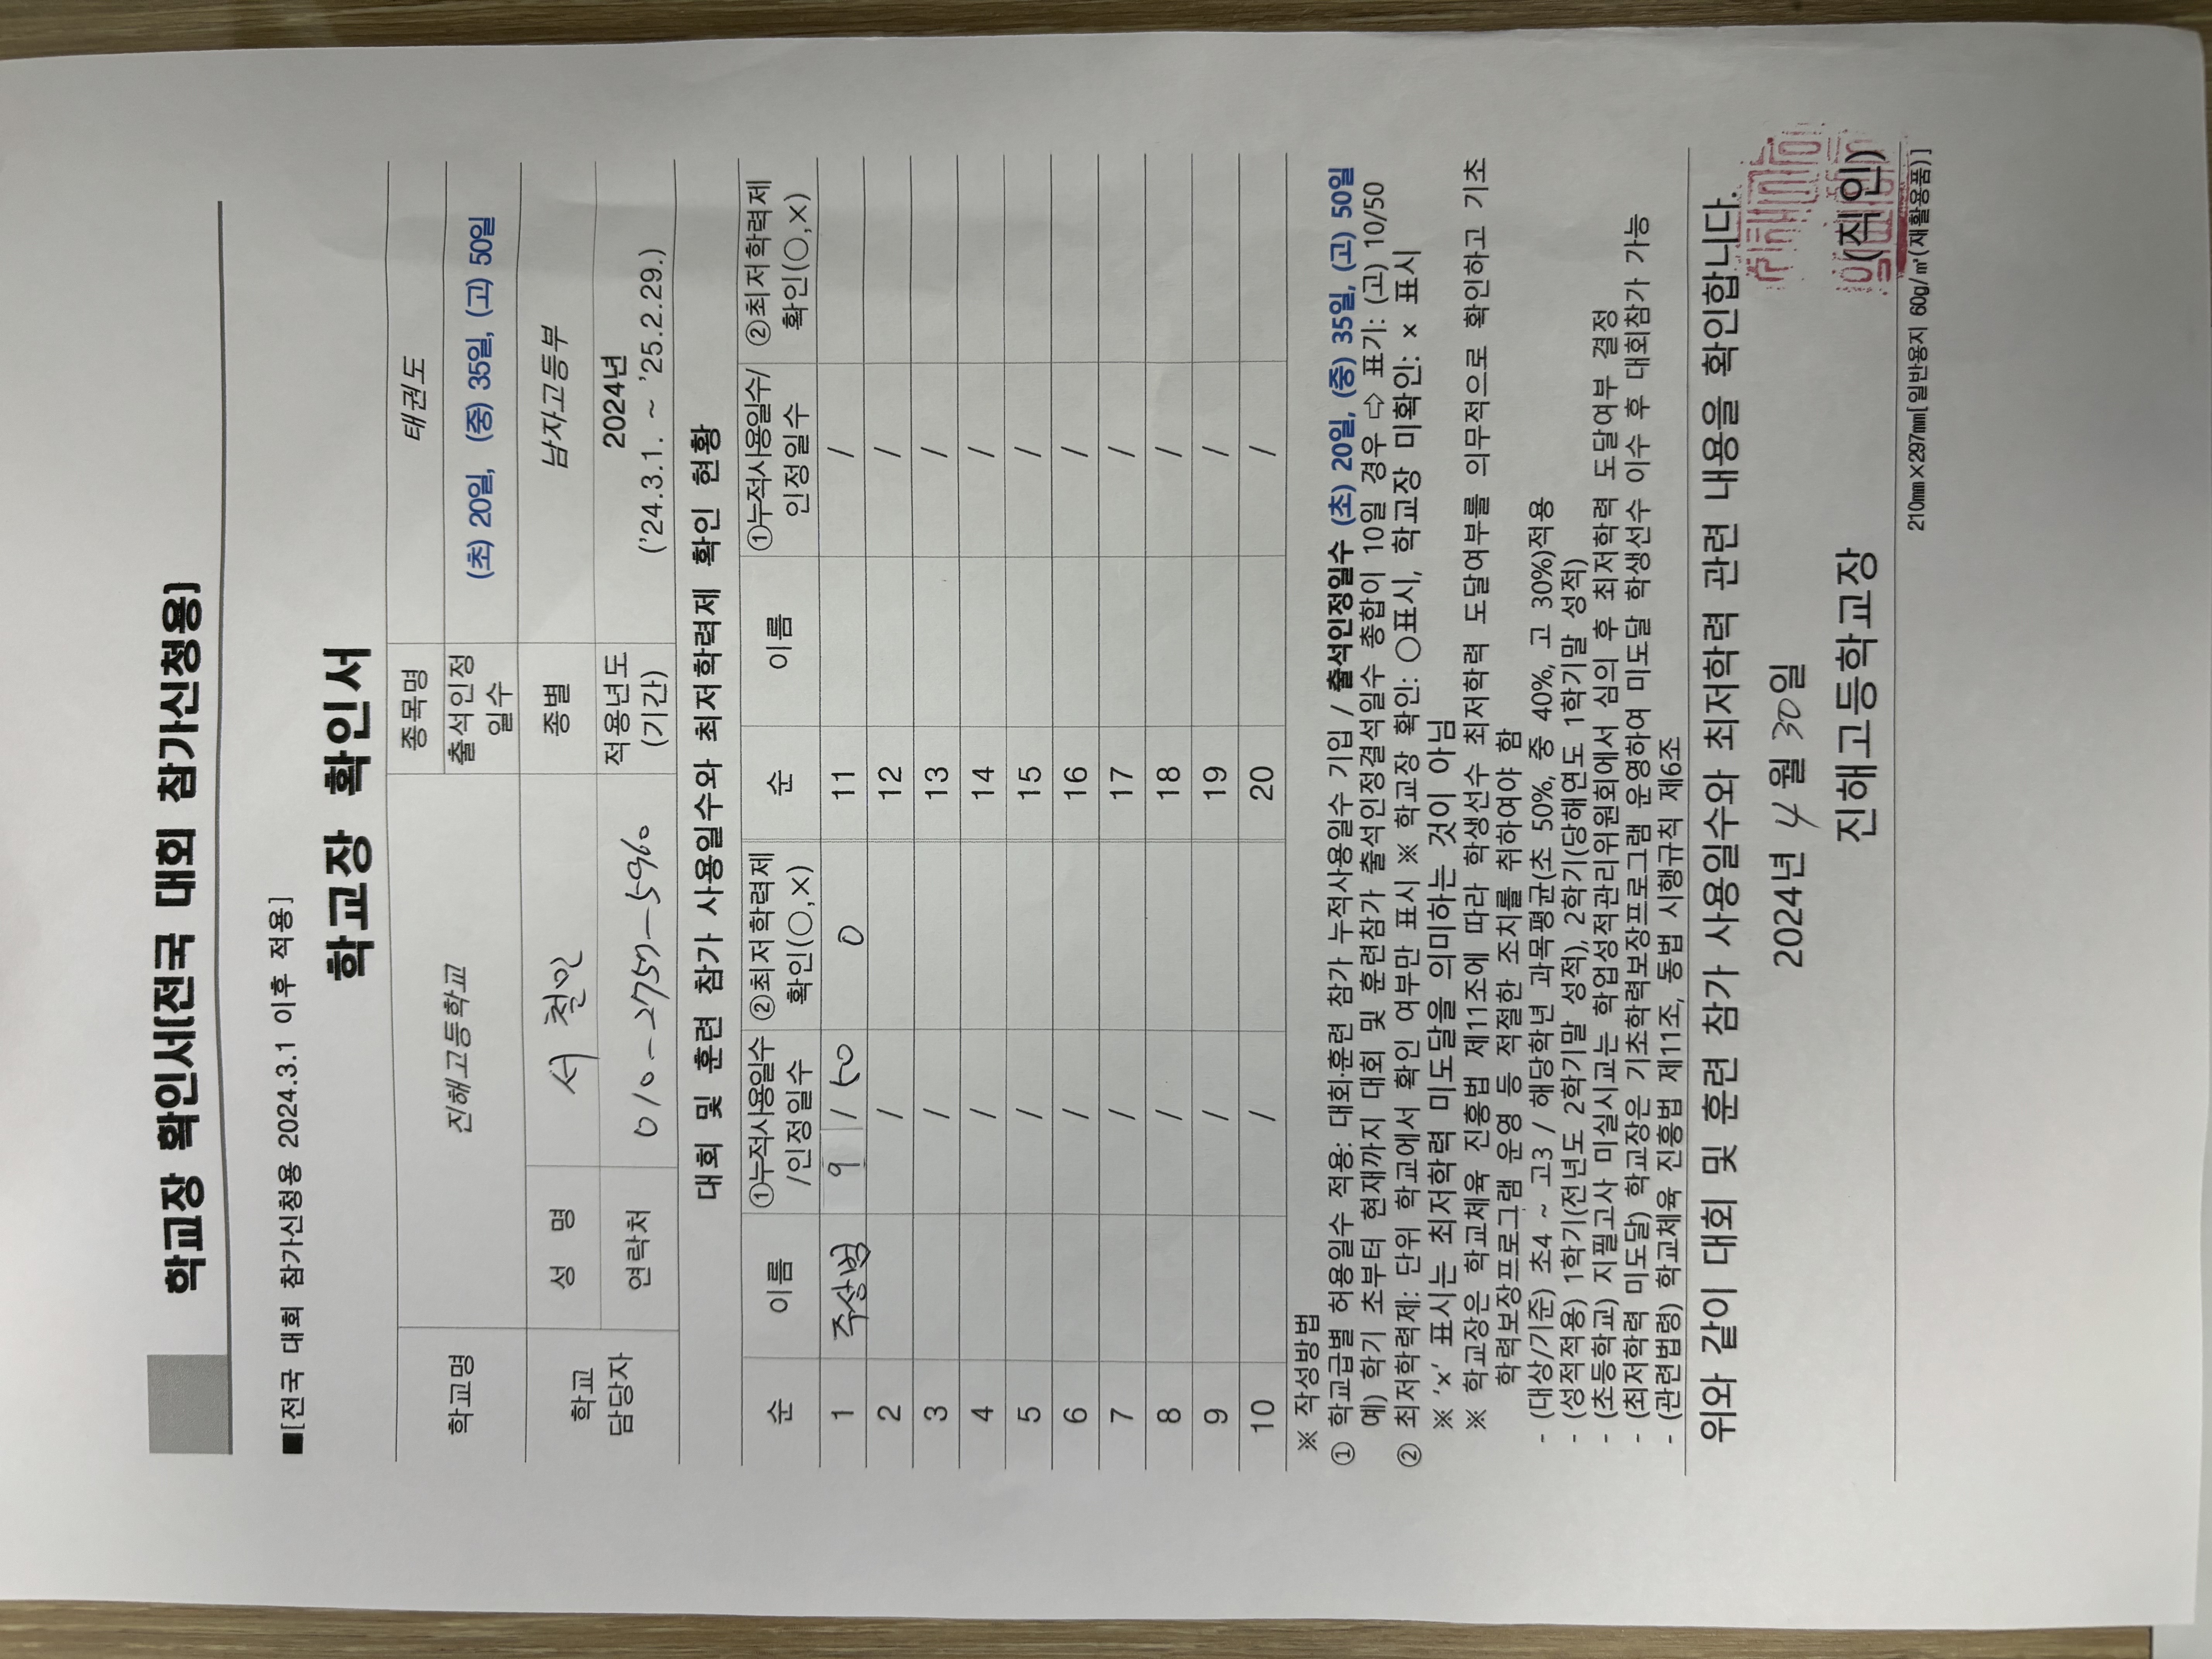 학교장 확인서(전국 대회 참가신청용)
■[전국 대회 참가신청용 2024.3.1 이후 적용]
학교장 확인서
학교명 진해고등학교 종목명 태권도
출석인정 일수 (초) 20일, (중) 35일, (고) 50일
학교 담당자 성 명 서철민 종별 남자고등부
연락처 010-2757-5960 적용년도 (기간) 2024년 ('24.3.1. ~ '25.2.29.)
대회 및 훈련 참가 사용일수와 최저학력제 확인 현황
순 이름 ①누적사용일수 /인정일수 ②최저학력제 확인(○,×) 순 이름 ①누적사용일수/ 인정일수 ②최저학력제 확인(○,×)
1 주상범 9 / 50 0 11 /
2 / 12 /
3 / 13 /
4 / 14 /
5 / 15 /
6 / 16 /
7 / 17 /
8 / 18 /
9 / 19 /
10 / 20 /
※ 작성방법
① 학교급별 허용일수 적용: 대회·훈련 참가 누적사용일수 기입 / 출석인정일수 (초) 20일, (중) 35일, (고) 50일
예) 학기 초부터 현재까지 대회 및 훈련참가 출석인정결석일수 총합이 10일 경우 ⇨ 표기: (고) 10/50
② 최저학력제: 단위 학교에서 확인 여부만 표시 ※ 학교장 확인: ○표시, 학교장 미확인: × 표시
※ 'x' 표시는 최저학력 미도달을 의미하는 것이 아님
※ 학교장은 학교체육 진흥법 제11조에 따라 학생선수 최저학력 도달여부를 의무적으로 확인하고 기초
학력보장프로그램 운영 등 적절한 조치를 취하여야 함
- (대상/기준) 초4 ~ 고3 / 해당학년 과목평균(초 50%, 중 40%, 고 30%)적용
- (성적적용) 1학기(전년도 2학기말 성적), 2학기(당해연도 1학기말 성적)
- (초등학교) 지필고사 미실시교는 학업성적관리위원회에서 심의 후 최저학력 도달여부 결정
- (최저학력 미도달) 학교장은 기초학력보장프로그램 운영하여 미도달 학생선수 이수 후 대회참가 가능
- (관련법령) 학교체육 진흥법 제11조, 동법 시행규칙 제6조
위와 같이 대회 및 훈련 참가 사용일수와 최저학력 관련 내용을 확인합니다.
2024년 4월 30일
진해고등학교장 (직인)
210㎜×297㎜[일반용지 60g/㎡(재활용품)]